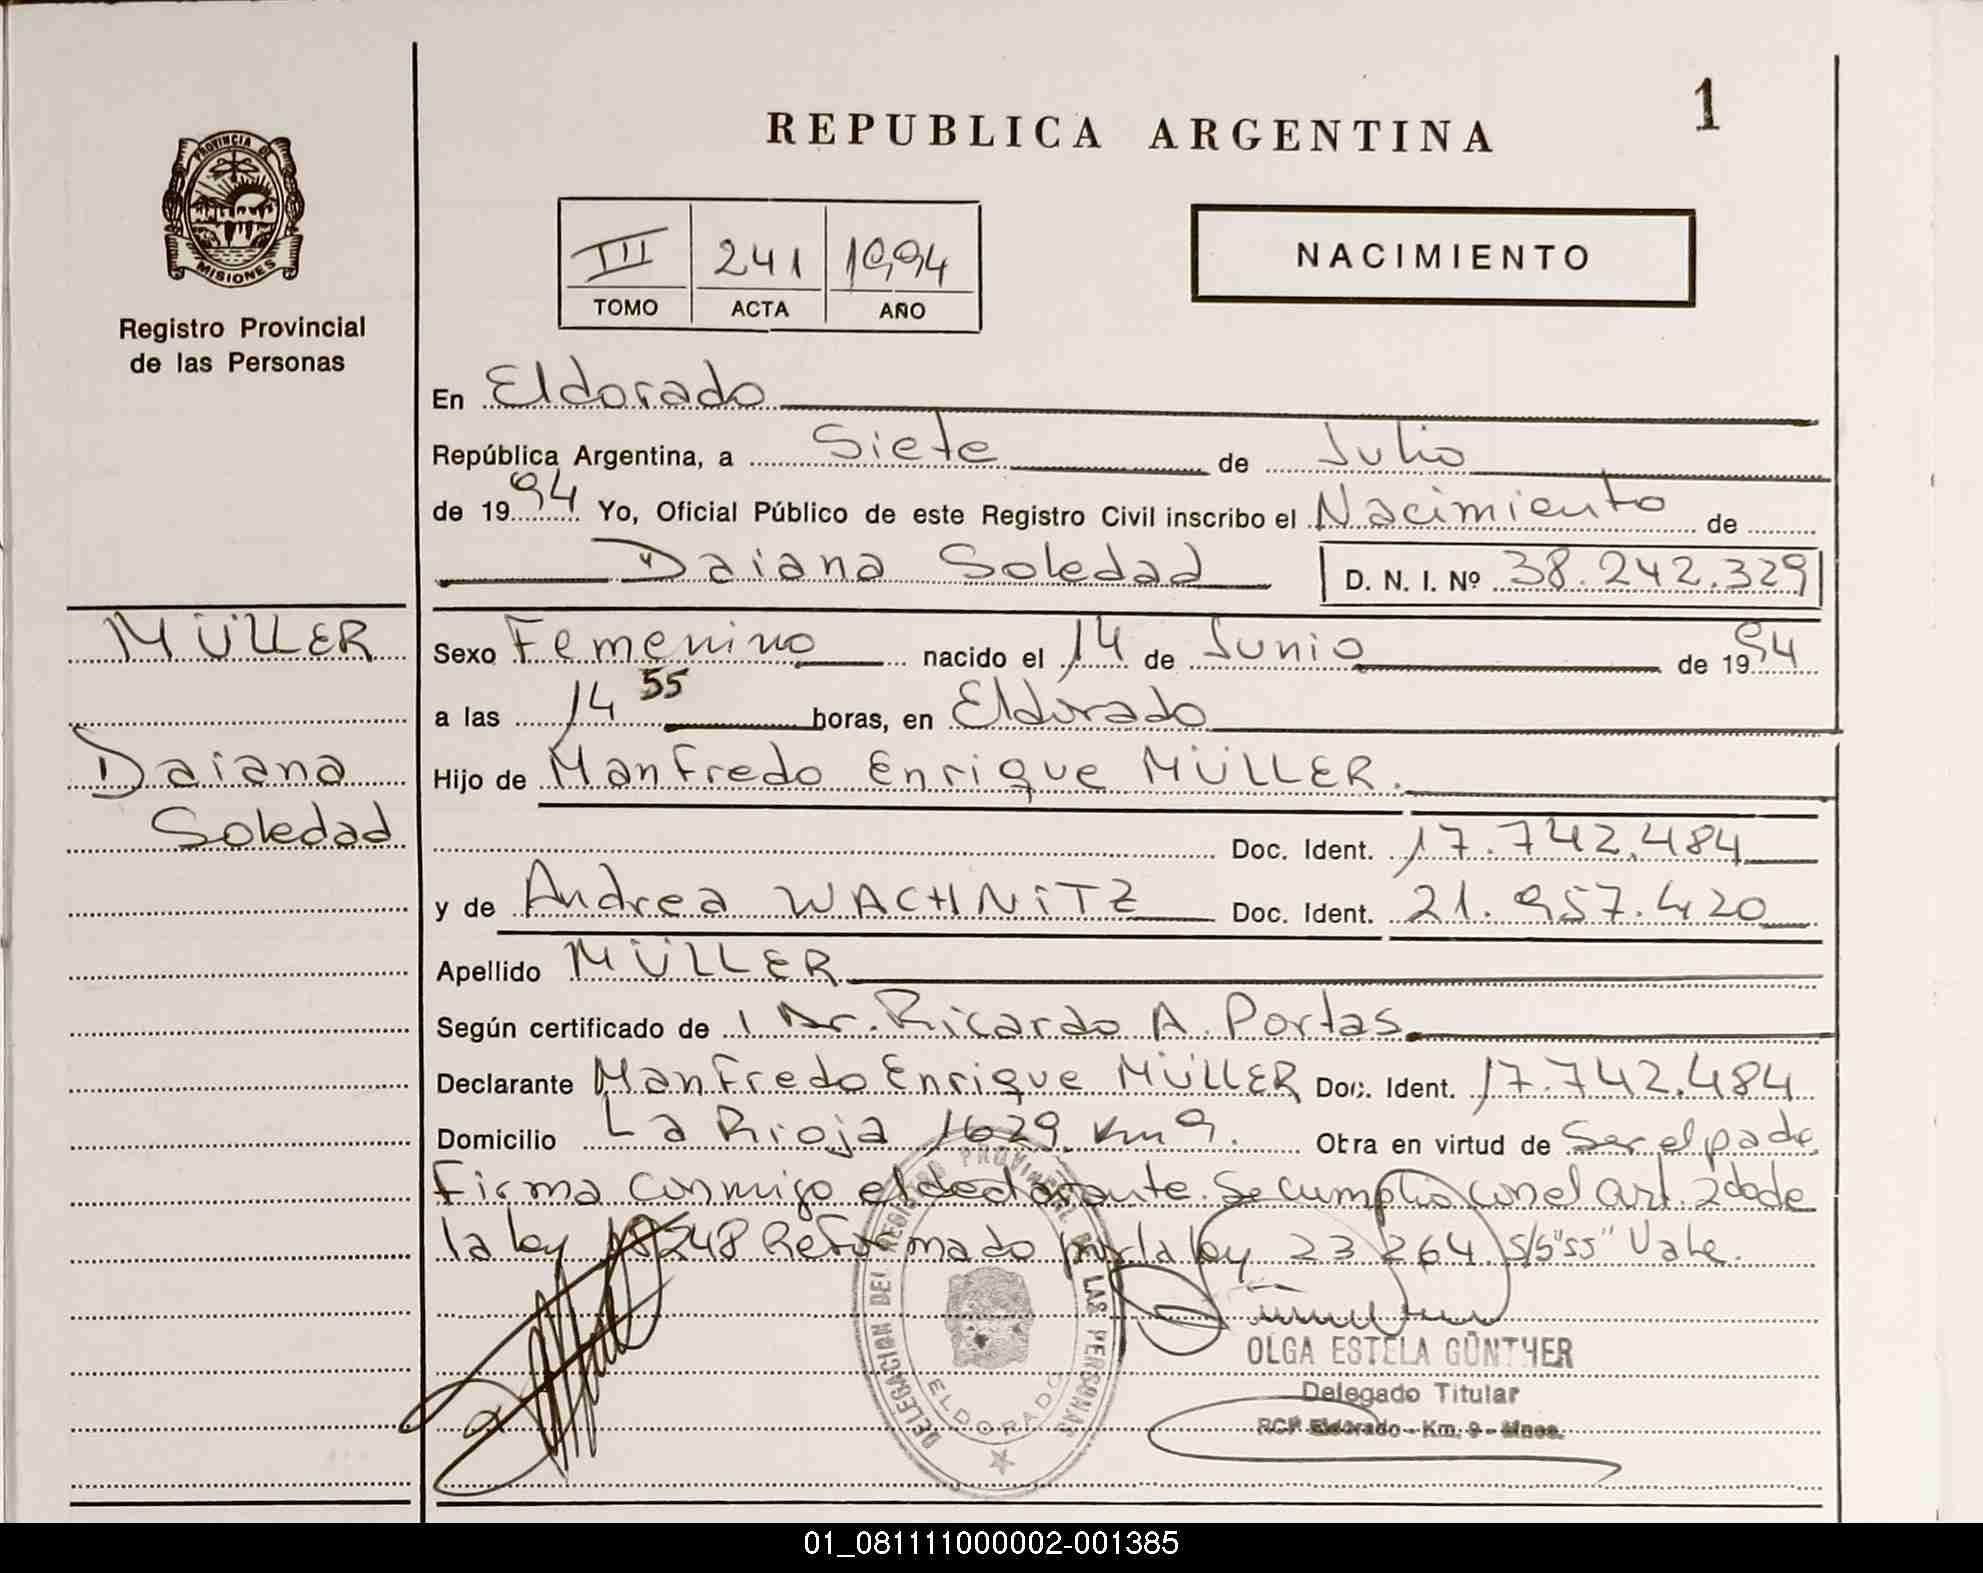 1
REPUBLICA ARGENTINA
PROVINCIA DE
MISIONES
Registro Provincial
de las Personas
III 241 1994
TOMO ACTA AÑO
NACIMIENTO
En Eldorado
República Argentina, a Siete de Julio
de 1994 Yo, Oficial Público de este Registro Civil inscribo el Nacimiento de
Daiana Soledad D. N. I. Nº 38.242.329
MÜLLER
Daiana
Soledad
Sexo Femenino nacido el 14 de Junio de 1994
a las 14 55 horas, en Eldorado
Hijo de Manfredo Enrique MÜLLER.
Doc. Ident. 17.742.484
y de Andrea WACHNiTZ Doc. Ident. 21.957.420
Apellido MÜLLER
Según certificado de Dr. Ricardo A. Portas
Declarante Manfredo Enrique MÜLLER Doc. Ident. 17.742.484
Domicilio La Rioja 1629 Km 9. Obra en virtud de Ser el padre
Firma conmigo el declarante. Se cumplio con el art. 2do de
la ley 18248 Reformado por la ley 23264. S/b "55" Vale.
DELEGACION DEL REGISTRO PROVINCIAL DE LAS PERSONAS
ELDORADO
OLGA ESTELA GÜNTHER
Delegado Titular
RCP Eldorado - Km. 9 - Mnes.
01_081111000002-001385